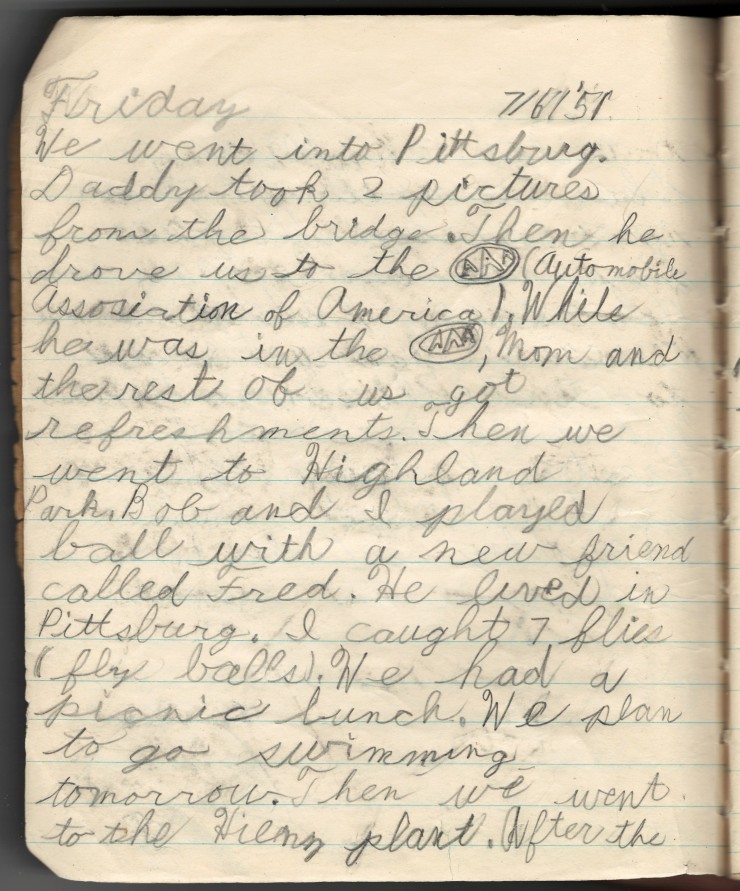 Friday 7/6/'51
We went into Pittsburg.
Daddy took 2 pictures
from the bridge. Then he
drove us to the AAA (Automobile
Assosiation of America). While
he was in the AAA, Mom and
the rest of us got
refreshments. Then we
went to Highland
Park. Bob and I played
ball with a new friend
called Fred. He lived in
Pittsburg. I caught 7 flies
(fly balls). We had a
picnic lunch. We plan
to go swimming
tomorrow. Then we went
to the plant. After the